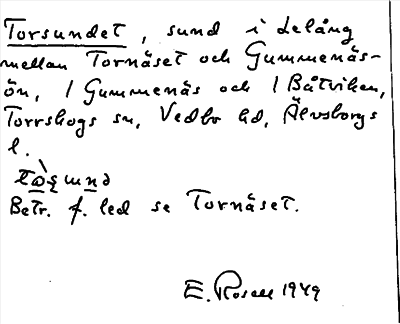 Torsundet, sund i Lelång
mellan Tornäset och Gummenäs-
ön, / Gummenäs och / Båtviken,
Torrskogs sn, Vedbo hd, Älvsborgs
l.
Betr. f. led se Tornäset.
E. Rosell 1949